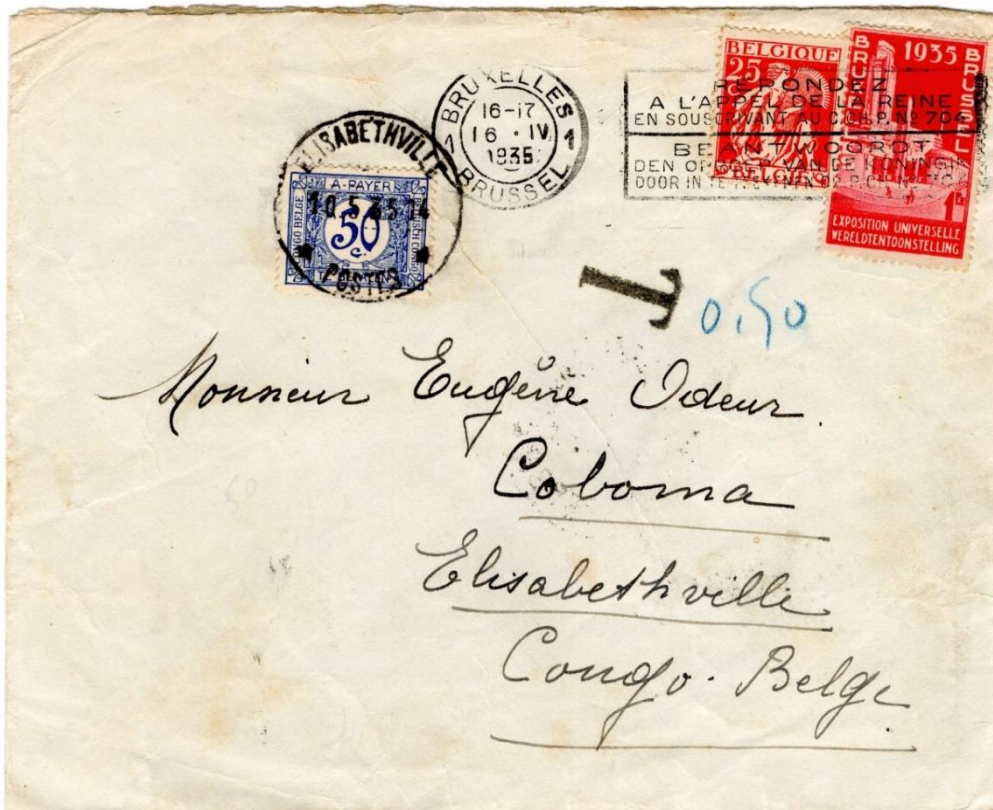 BRUXELLES
1 16-17 1
16 · IV
1935
BRUSSEL
REPONDEZ
A L'APPEL DE LA REINE
EN SOUSCRIVANT AU C.CH.P. Nº 704
BEANTWOORDT
DEN OPROEP VAN DE KONINGIN
BELGIQUE
25
BELGIË
1935
BRUSSEL
1
EXPOSITION UNIVERSELLE
WERELDTENTOONSTELLING
ELISABETHVILLE
POSTES
A PAYER
CONGO BELGE
50
c.
T
0,50
Monsieur Eugène Odeur
Coboma
Elisabethville
Congo-Belge